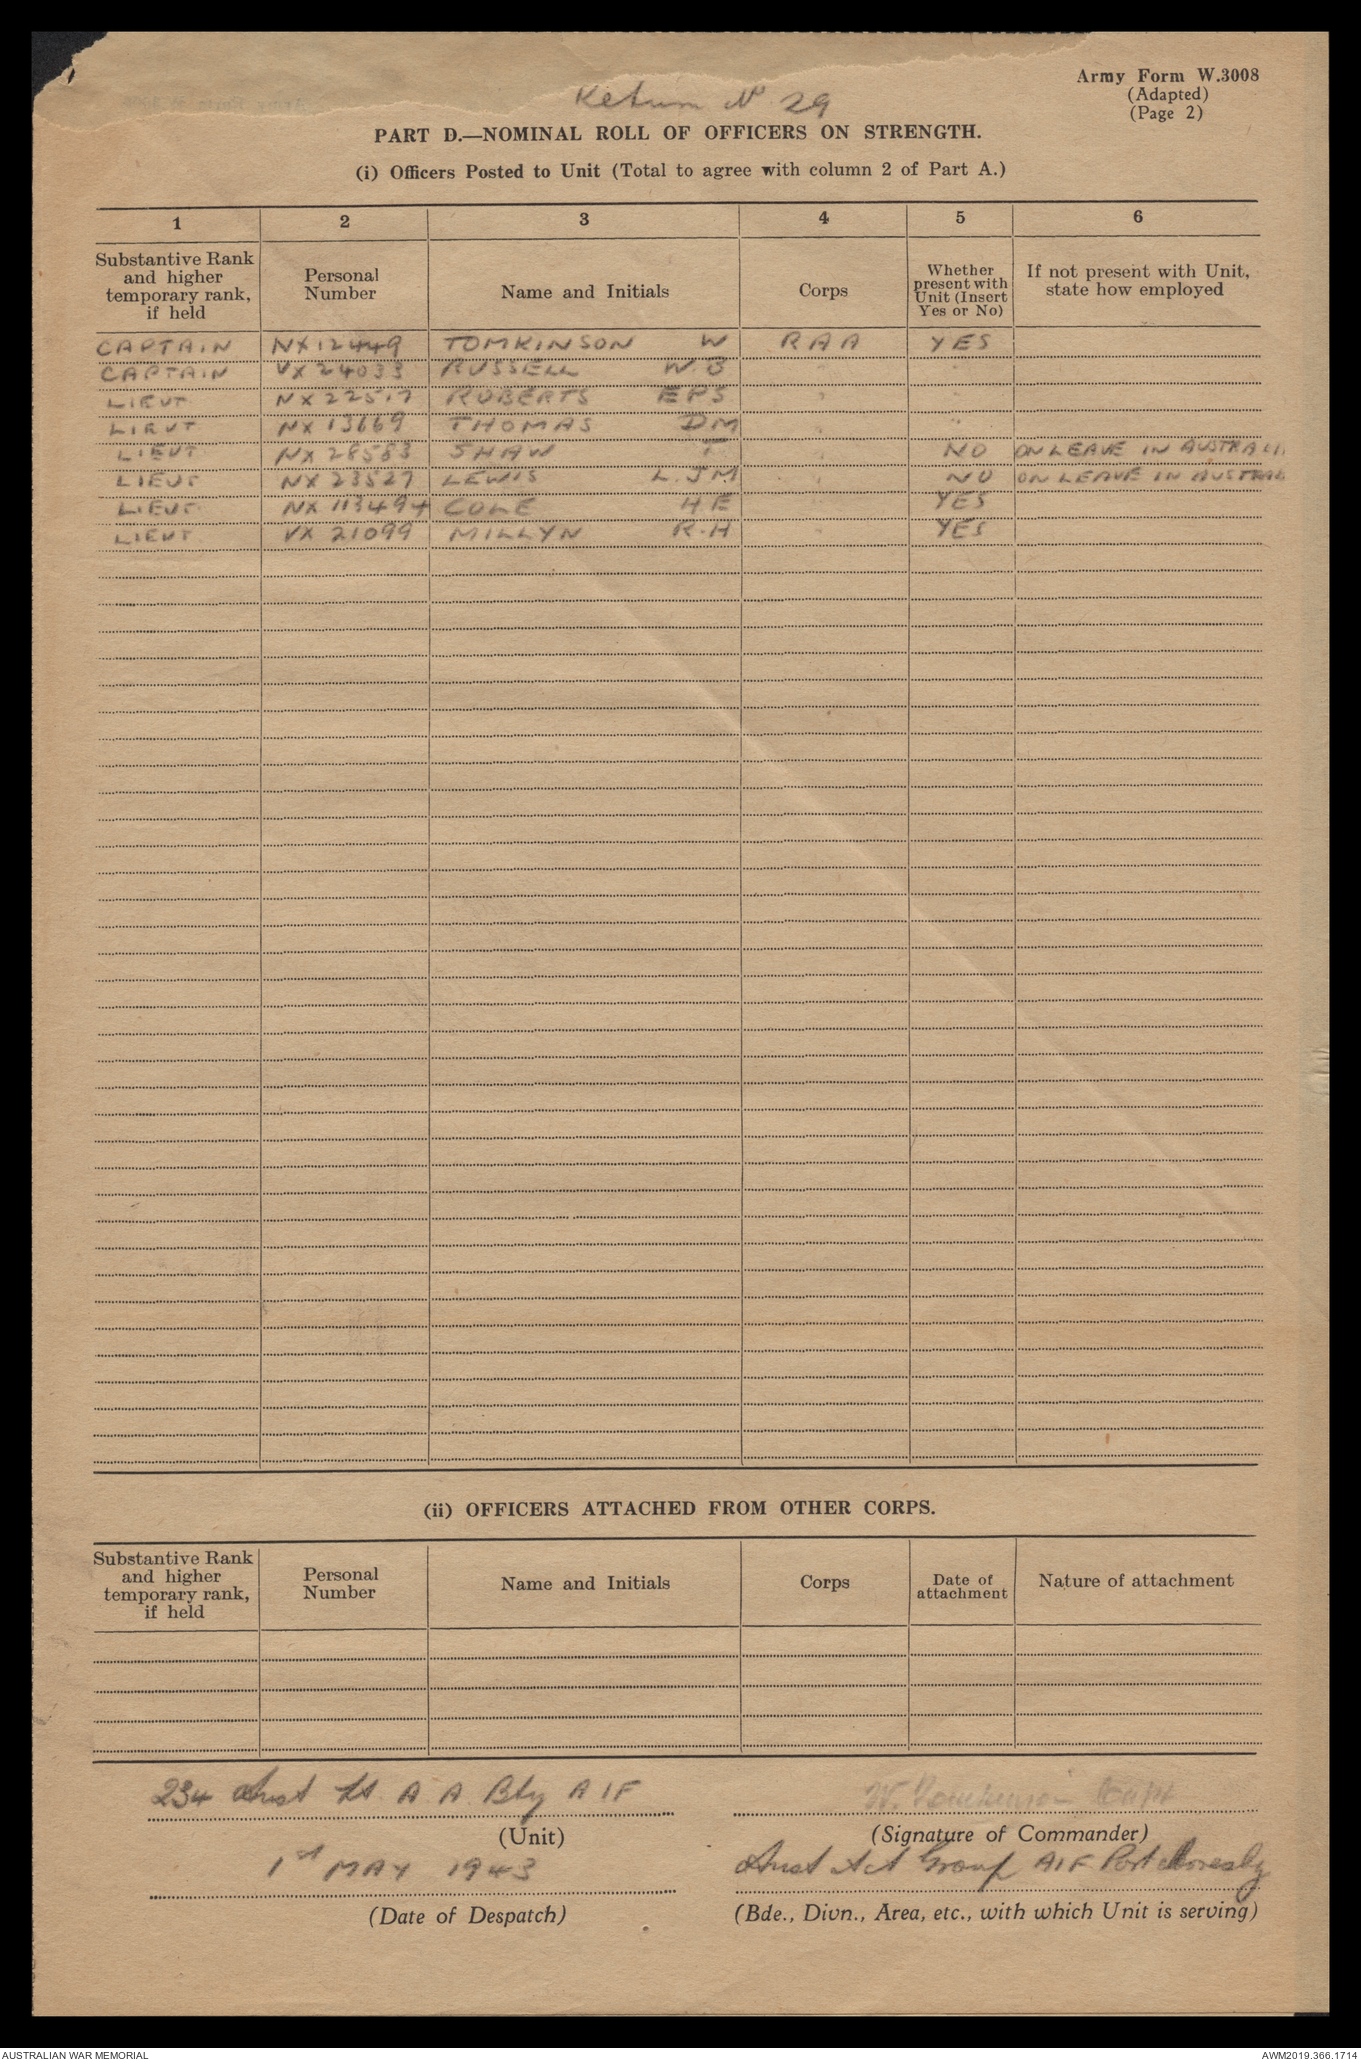 Army Form W.3008
(Adapted)
(Page 2)
Return No 29
PART D.—NOMINAL ROLL OF OFFICERS ON STRENGTH.
(i) Officers Posted to Unit (Total to agree with column 2 of Part A.)
1 2 3 4 5 6
Substantive Rank and higher temporary rank, if held Personal Number Name and Initials Corps Whether present with Unit (Insert Yes or No) If not present with Unit, state how employed
CAPTAIN NX12449 TOMKINSON W RAA YES
CAPTAIN VX 24033 RUSSELL W.B " "
LIEUT NX 22517 ROBERTS EPS " "
LIEUT NX 13669 THOMAS DM " "
LIEUT NX 28583 SHAW T " NO ON LEAVE IN AUSTRALI
LIEUT NX 23527 LEWIS L.JM " NO ON LEAVE IN AUSTRAL
LIEUT NX 113494 COLE HE " YES
LIEUT VX 21099 MILLYN R.H " YES
(ii) OFFICERS ATTACHED FROM OTHER CORPS.
Substantive Rank and higher temporary rank, if held Personal Number Name and Initials Corps Date of attachment Nature of attachment
234 Aust Lt A A Bty AIF
(Unit)
W. Tomkinson Capt
(Signature of Commander)
1st MAY 1943
(Date of Despatch)
Aust Group AIF Port Moresby
(Bde., Divn., Area, etc., with which Unit is serving)
AUSTRALIAN WAR MEMORIAL
AWM2019.366.1714